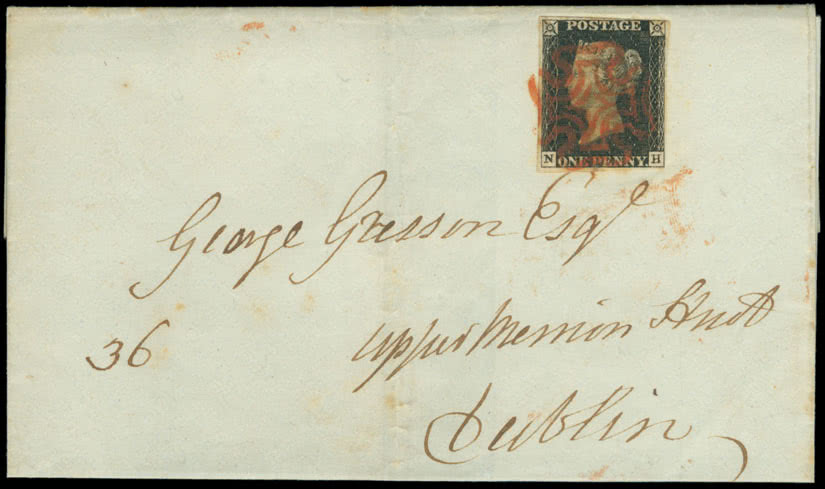 POSTAGE
N ONE PENNY. H
George Gresson Esqr
36 Upper Merrion Street
Dublin